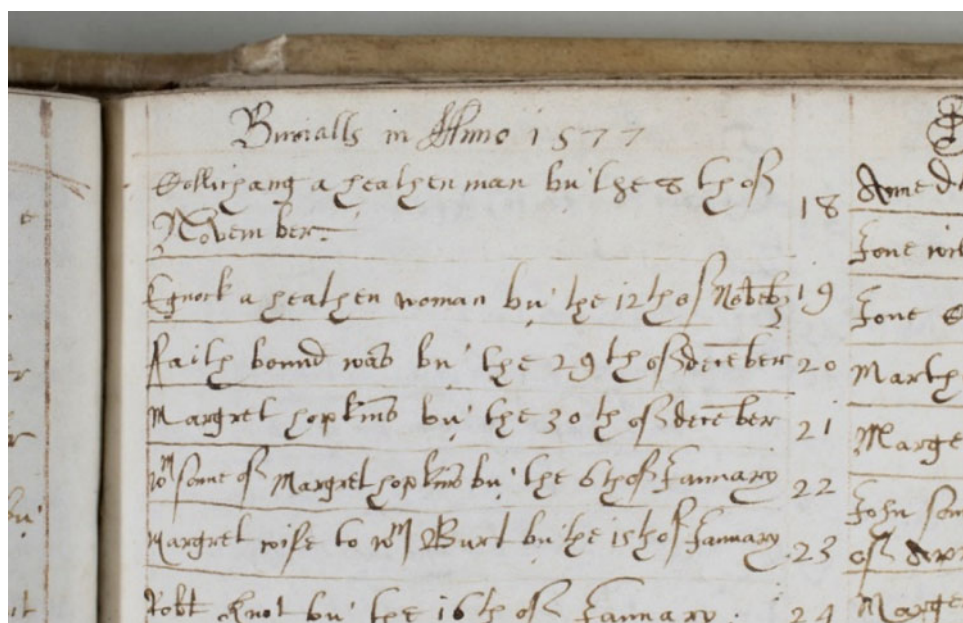 Burialls in Anno 1577
Collichang a heathen man bu' the 8 th of
November. 18
Egnock a heathen woman bu' the 12 th of Nobeb 19
Faith bound was bu' the 29 th of decēber 20
Margret hopkins bu' the 30 th of decēber 21
wm sonne of Margret hopkins bu' the 6 th of January 22
Margret wife to wm Burt bu' the 15 th of January 23
Robt Knot bu' the 16 th of January. 24
Anne
Jone
Jone
Marth
Marge
John son
of
Marge